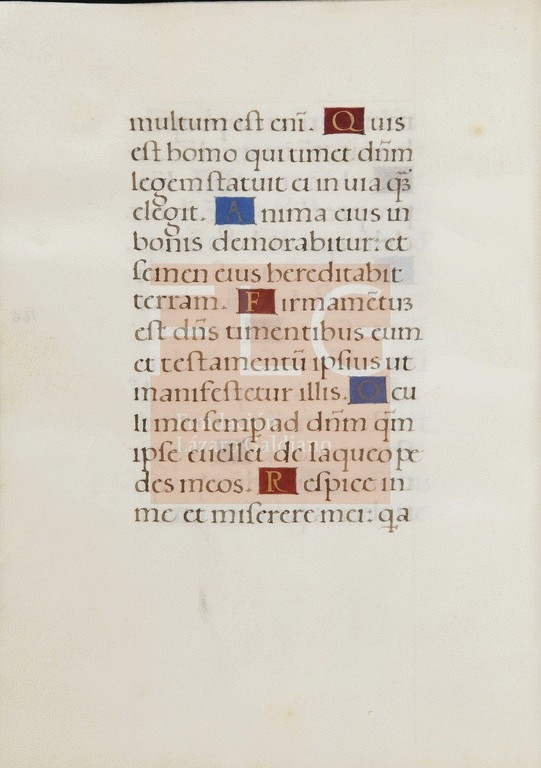 multum est eni̅. Quis
est homo qui timet dn̅m
legem statuit ei in uia qꝫ̅
elegit. Anima eius in
bonis demorabitur: et
semen eius hereditabit
terram. Firmame̅tuꝫ
est dn̅s timentibus eum
et testamentu̅ ipsius ut
manifestetur illis. Ocu
li mei semꝑ ad dn̅m qm̅
ipse euellet de laqueo pe
des meos. Respice in
me et miserere mei: qa
FLG
Fundación
Lázaro Galdiano